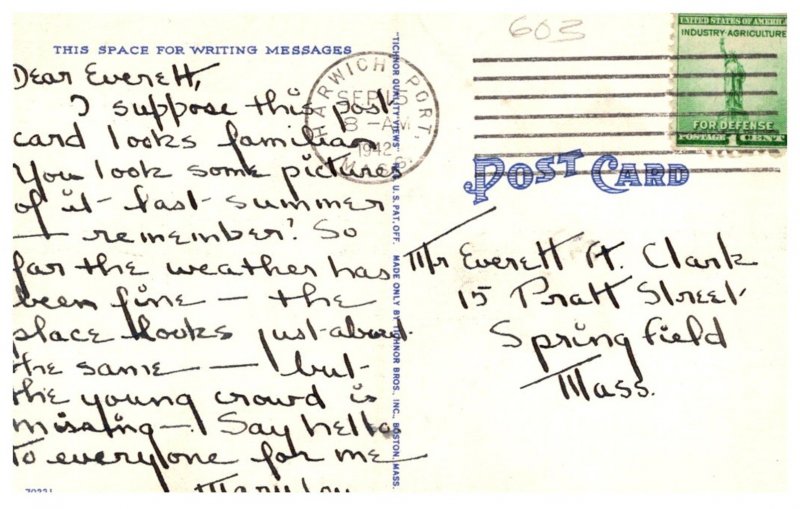 THIS SPACE FOR WRITING MESSAGES
Dear Everett,
I suppose this post
card looks familiar
You took some pictures
of it last summer
— remember? So
far the weather has
been fine — the
place looks just about
the same — but
the young crowd is
missing —. Say hello
to everyone for me
Mary Lou
70221
"TICHNOR QUALITY VIEWS" REG. U. S. PAT. OFF. MADE ONLY BY TICHNOR BROS., INC., BOSTON, MASS.
HARWICH PORT
SEP 15
8 - AM
1942
MASS.
603
UNITED STATES OF AMERICA
INDUSTRY AGRICULTURE
FOR DEFENSE
POSTAGE 1 CENT
POST CARD
Mr Everett A. Clark
15 Pratt Street
Springfield
Mass.